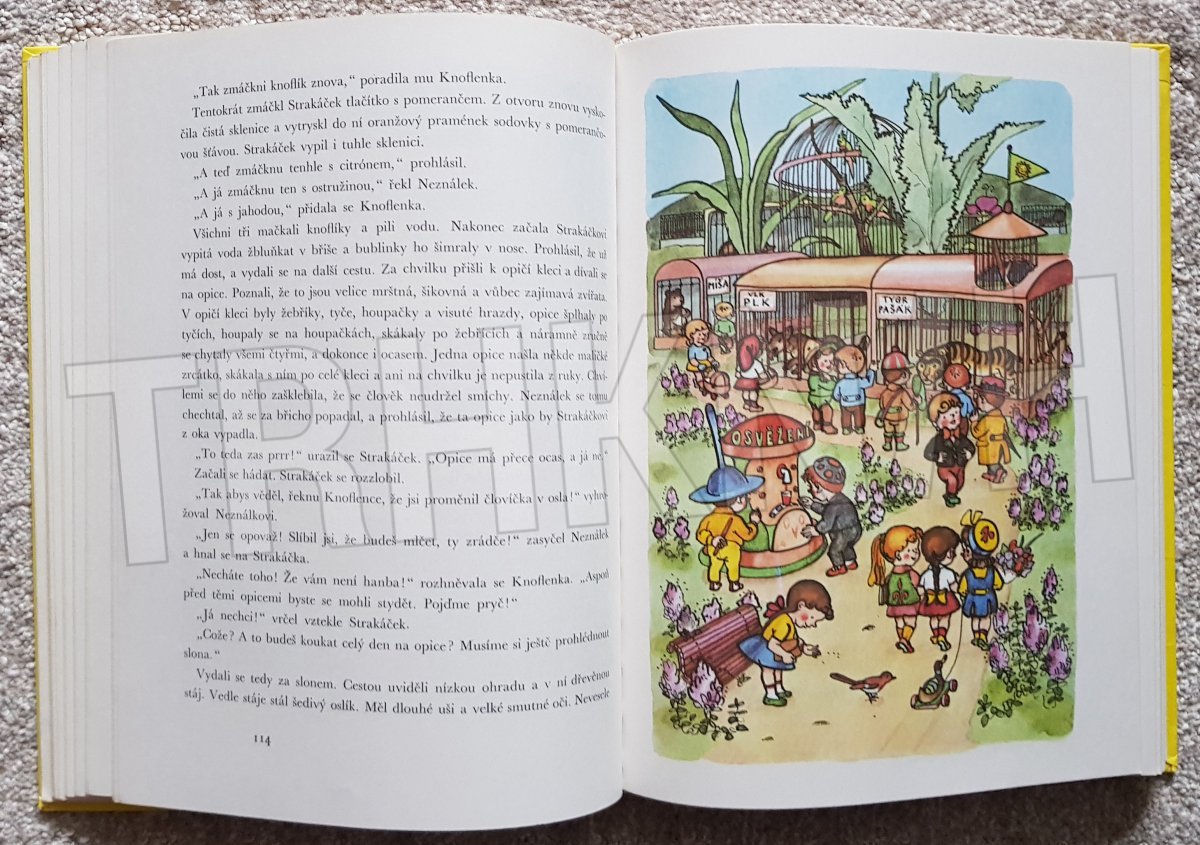 „Tak zmáčkni knoflík znova,“ poradila mu Knoflenka.
Tentokrát zmáčkl Strakáček tlačítko s pomerančem. Z otvoru znovu vysko-
čila čistá sklenice a vytryskl do ní oranžový pramének sodovky s pomerančo-
vou šťávou. Strakáček vypil i tuhle sklenici.
„A teď zmáčknu tenhle s citrónem,“ prohlásil.
„A já zmáčknu ten s ostružinou,“ řekl Neználek.
„A já s jahodou,“ přidala se Knoflenka.
Všichni tři mačkali knoflíky a pili vodu. Nakonec začala Strakáčkovi
vypitá voda žbluňkat v břiše a bublinky ho šimraly v nose. Prohlásil, že už
má dost, a vydali se na další cestu. Za chvilku přišli k opičí kleci a dívali se
na opice. Poznali, že to jsou velice mrštná, šikovná a vůbec zajímavá zvířata.
V opičí kleci byly žebříky, tyče, houpačky a visuté hrazdy, opice šplhaly po
tyčích, houpaly se na houpačkách, skákaly po žebřících a náramně zručně
se chytaly všemi čtyřmi, a dokonce i ocasem. Jedna opice našla někde maličké
zrcátko, skákala s ním po celé kleci a ani na chvilku je nepustila z ruky. Chví-
lemi se do něho zašklebila, že se člověk neudržel smíchy. Neználek se tomu
chechtal, až se za břicho popadal, a prohlásil, že ta opice jako by Strakáčkovi
z oka vypadla.
„To teda zas prrr!“ urazil se Strakáček. „Opice má přece ocas, a já ne.“
Začali se hádat. Strakáček se rozzlobil.
„Tak abys věděl, řeknu Knoflence, že jsi proměnil človíčka v osla!“ vyhro-
žoval Neználkovi.
„Jen se opovaž! Slíbil jsi, že budeš mlčet, ty zrádče!“ zasyčel Neználek
a hnal se na Strakáčka.
„Necháte toho! Že vám není hanba!“ rozhněvala se Knoflenka. „Aspoň
před těmi opicemi byste se mohli stydět. Pojďme pryč!“
„Já nechci!“ vrčel vztekle Strakáček.
„Cože? A to budeš koukat celý den na opice? Musíme si ještě prohlédnout
slona.“
Vydali se tedy za slonem. Cestou uviděli nízkou ohradu a v ní dřevěnou
stáj. Vedle stáje stál šedivý oslík. Měl dlouhé uši a velké smutné oči. Nevesele
114
MIŠA
VLK
PLK
TYGR
PAŠÁK
OSVĚŽENÍ